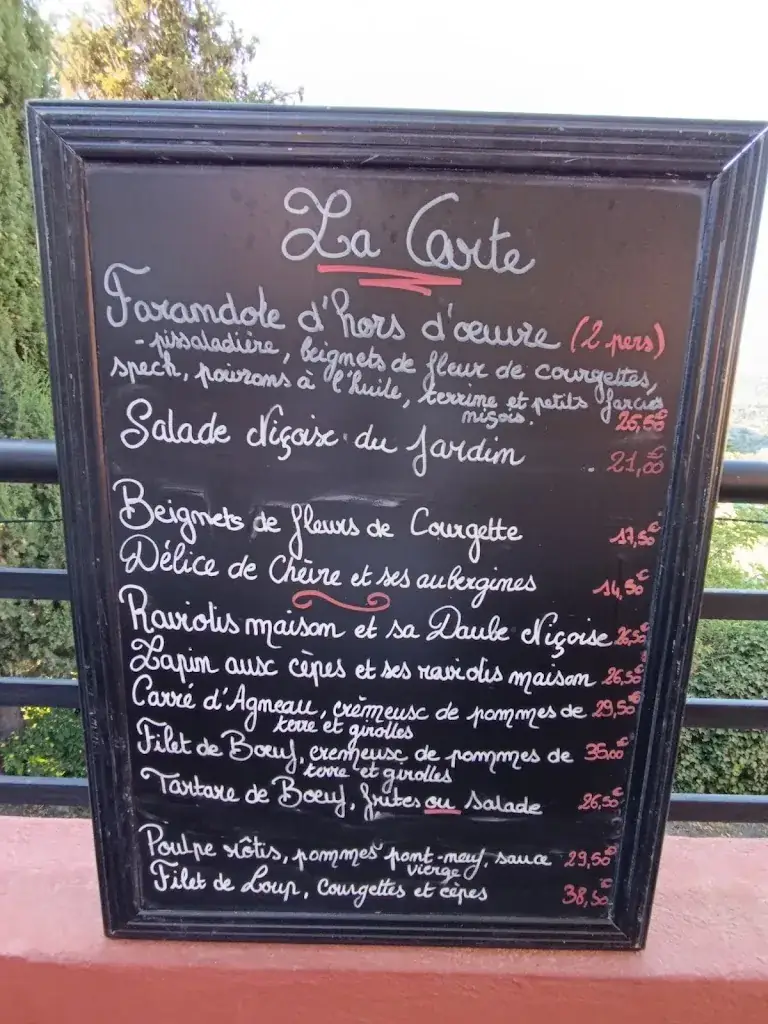 La Carte
Farandole d'hors d'œuvre (2 pers)
- pissaladière, beignets de fleur de courgettes,
speck, poivrons à l'huile, terrine et petits farcis
niçois.
Salade Niçoise du Jardin 21,00€
Beignets de fleurs de Courgette 17,50€
Délice de Chèvre et ses aubergines 14,50€
Raviolis maison et sa Daube Niçoise 26,50€
Lapin aux cèpes et ses raviolis maison 26,50€
Carré d'Agneau, crèmeux de pommes de 29,50€
terre et girolles
Filet de Bœuf, cremeux de pommes de 35,00€
terre et girolles
Tartare de Bœuf, frites ou salade 26,50€
Poulpe rôtis, pommes pont-neuf, sauce 29,50€
vierge
Filet de Loup, courgettes et cèpes 38,50€